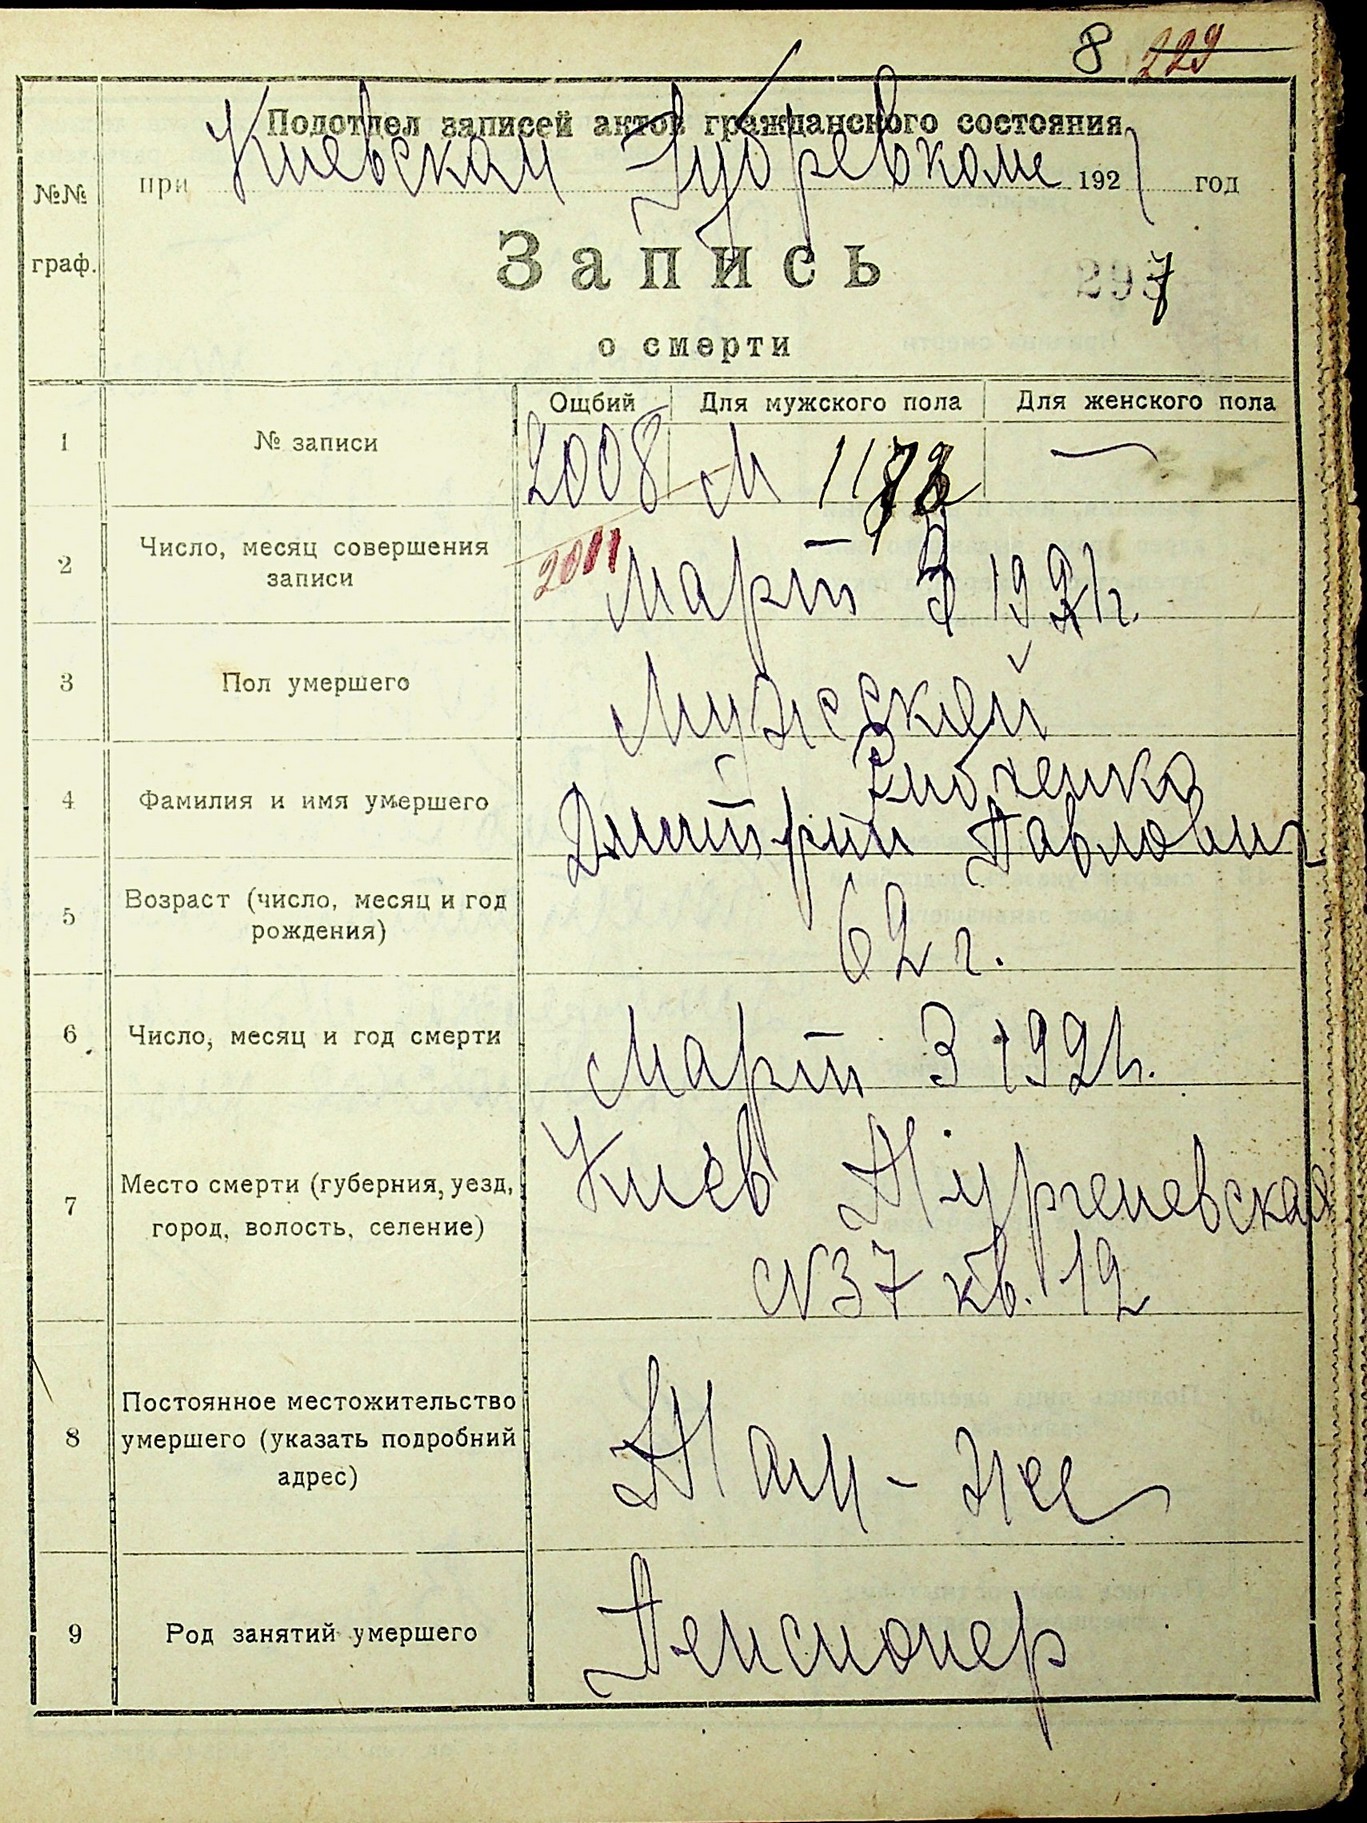 8 229
Подотдел записей актов гражданского состояния
при Киевском Губревкоме 1921 год
№№
граф.
Запись
297
о смерти
Ощбий Для мужского пола Для женского пола
1 № записи 2008 М 1173 —
2011
2 Число, месяц совершения
записи
Март 3 1921 г.
3 Пол умершего Мужеский
4 Фамилия и имя умершего
Дмитрий Павлович
5 Возраст (число, месяц и год
рождения)
62 г.
6 Число, месяц и год смерти Март 3 1921 г.
7 Место смерти (губерния, уезд,
город, волость, селение)
Киев Тургеневская
N 37 кв. 12
8 Постоянное местожительство
умершего (указать подробний
адрес)
Там-же
9 Род занятий умершего Пенсионер